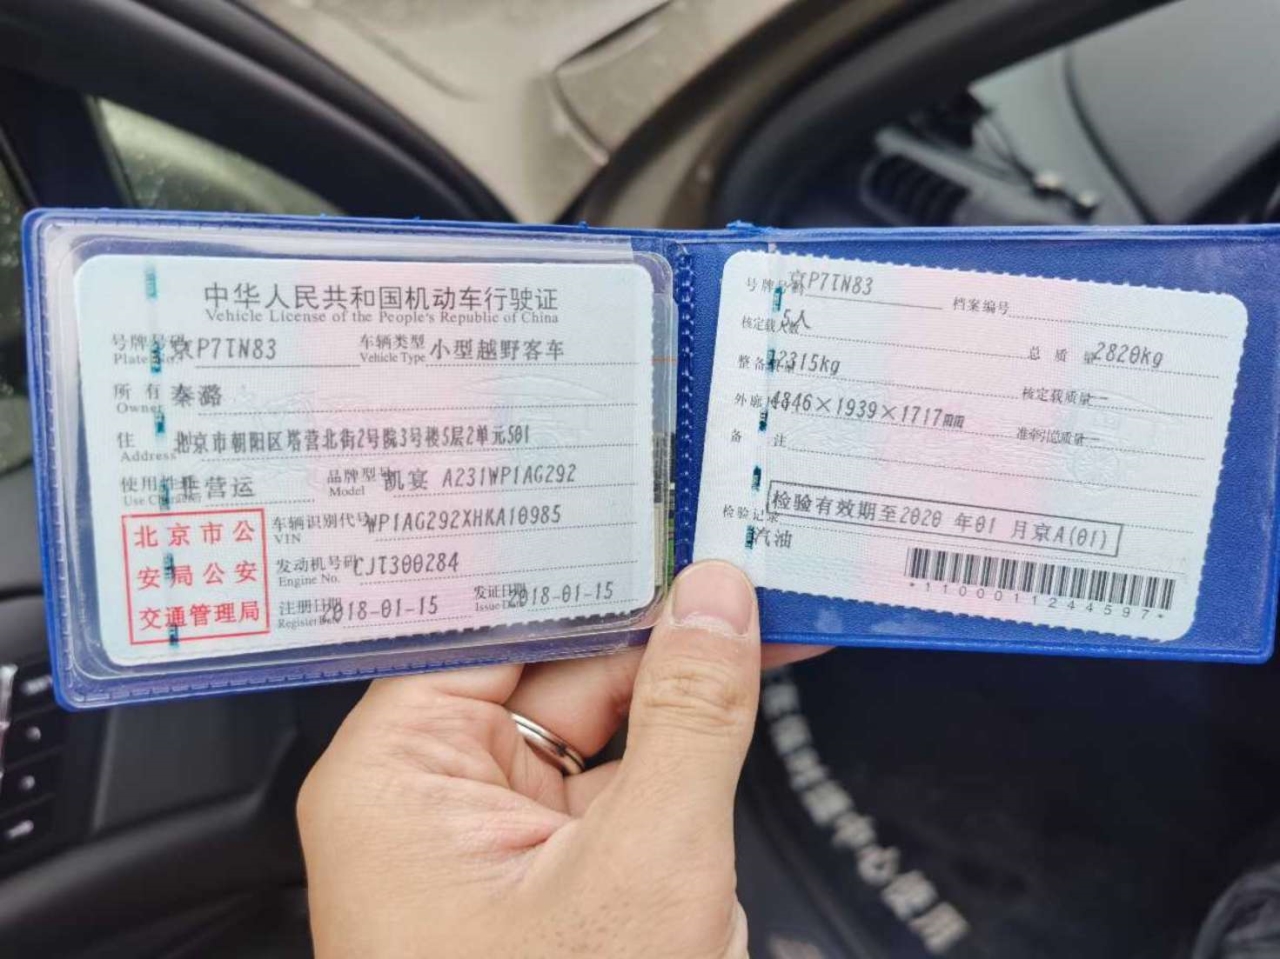 中华人民共和国机动车行驶证
Vehicle License of the People's Republic of China
号牌号码 京P7TN83 车辆类型 小型越野客车
Plate No. Vehicle Type
所有 秦潞
Owner
住 北京市朝阳区塔营北街2号院3号楼5层2单元501
Address
使用性 非营运 品牌型号 凯宴 A231WP1AG292
Use Model
北京市公
安局公安
交通管理局
车辆识别代号 WP1AG292XHKA10985
VIN
发动机号码 CJT300284
Engine No.
注册日期 2018-01-15 发证日期 2018-01-15
Register Date Issue Date
号牌号码 京P7TN83 档案编号
核定载人数 5人 总质量 2820kg
整备质量 2315kg 核定载质量 --
外廓尺寸 4846×1939×1717mm 准牵引总质量 --
备注
检验记录 检验有效期至2020年01月京A(01)
汽油
*1100011244597*